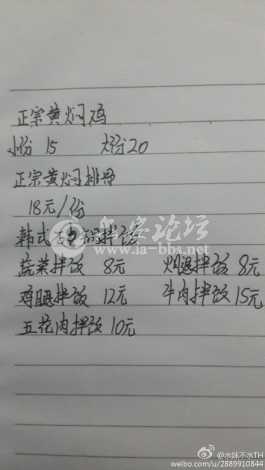 正宗黄焖鸡
小份 15 大份20
正宗黄焖排骨
18元/份
韩式石锅拌饭
蔬菜拌饭 8元 火腿拌饭 8元
鸡腿拌饭 12元 牛肉拌饭 15元
五花肉拌饭 10元
论坛
www.ia-bbs.net
@水妹不水TH
weibo.com/u/2889910844